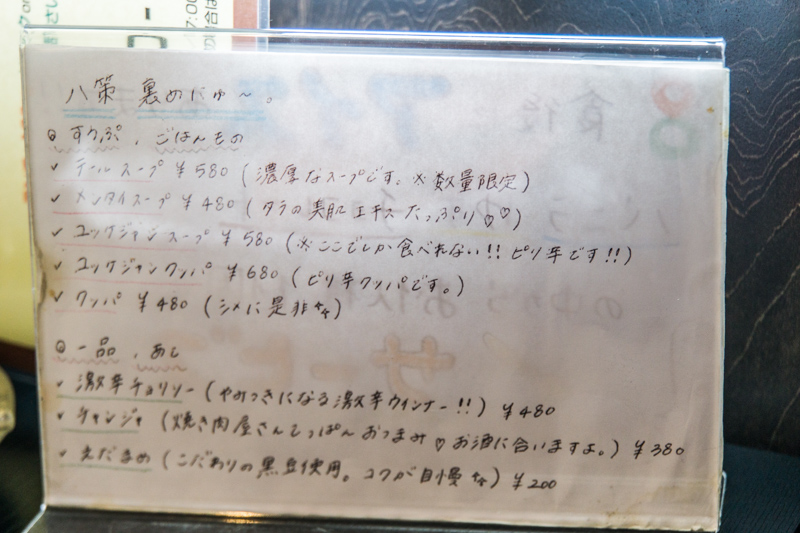 八策 裏めにゅ〜。
◎ すうぷ、ごはんもの
✓ テールスープ ¥580 (濃厚なスープです。※数量限定)
✓ メンタイスープ ¥480 (タラの美肌エキスたっぷり♡♡)
✓ ユッケジャンスープ ¥580 (※ここでしか食べれない!! ピリ辛です!!)
✓ ユッケジャンクッパ ¥680 (ピリ辛クッパです。)
✓ クッパ ¥480 (シメに是非)
◎ 一品、あし
✓ 激辛チョリソー (やみつきになる激辛ウインナー!!) ¥480
✓ チャンジャ (焼き肉屋さんてっぱんおつまみ♡お酒に合いますよ。) ¥380
✓ えだまめ (こだわりの黒豆使用。コクが自慢) ¥200
食後